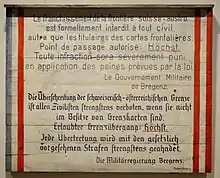 Le franchissement de la frontière Suisse-austro
est formellement interdit à tout civil
autre que les titulaires des cartes frontalières.
Point de passage autorisé Höchst.
Toute infraction sera sévèrement puni
en application des peines prévues par la loi
Le Gouvernement Militaire
de Bregenz.
Die Überschreitung der schweizerisch-österreichischen Grenze
ist allen Zivilisten strengstens verboten, wenn sie nicht
im Besitze von Grenzkarten sind.
Erlaubter Grenzübergang: Höchst.
Jede Übertretung wird mit den gesetzlich
vorgesehenen Strafen strengstens geahndet.
Die Militärregierung Bregenz.